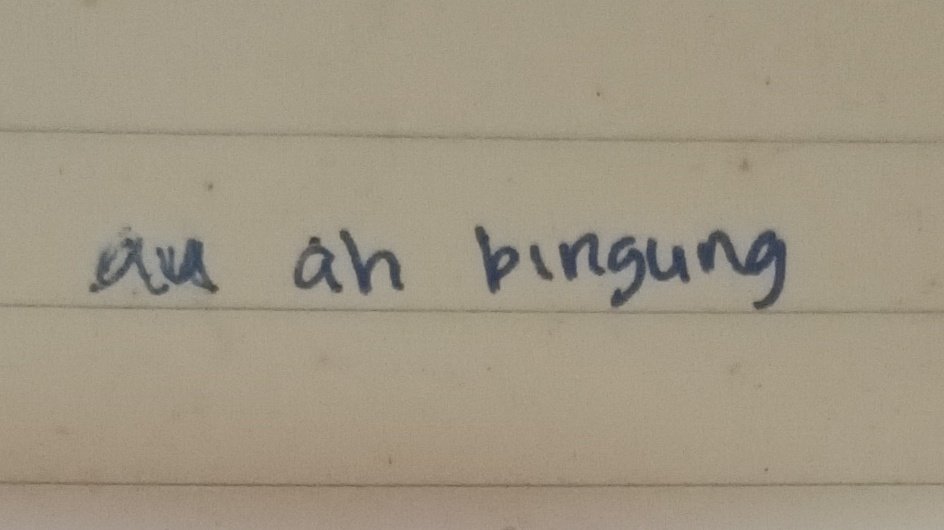 au ah bingung